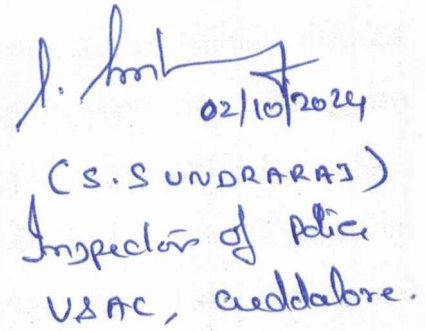 02/10/2024
(S. SUNDRARAJ)
Inspector of Police
VSAC, Cuddalore.